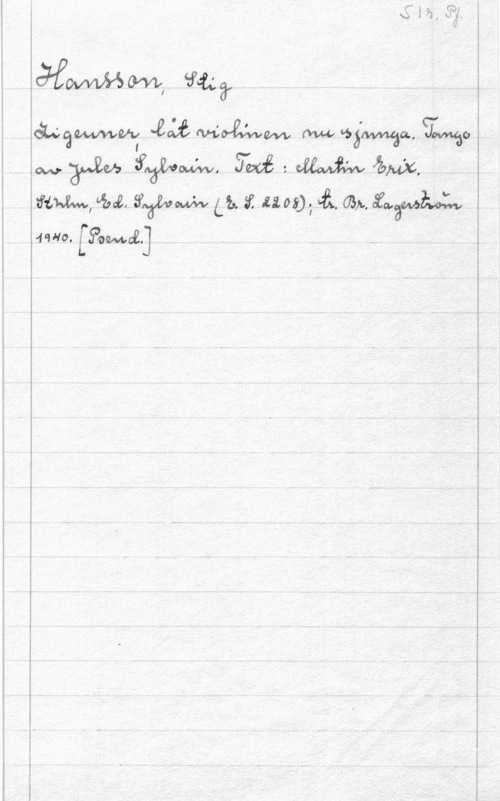 S 1 r. Pf.
Hansson, Stig
Zigeuner, låt violinen nu sjunga. Tango
av Jules Sylvain. Text : Martin Erix.
Sthlm, Ed. Sylvain (E. S. 2208); tr. Br. Lagerström
1940. [Pseud.]